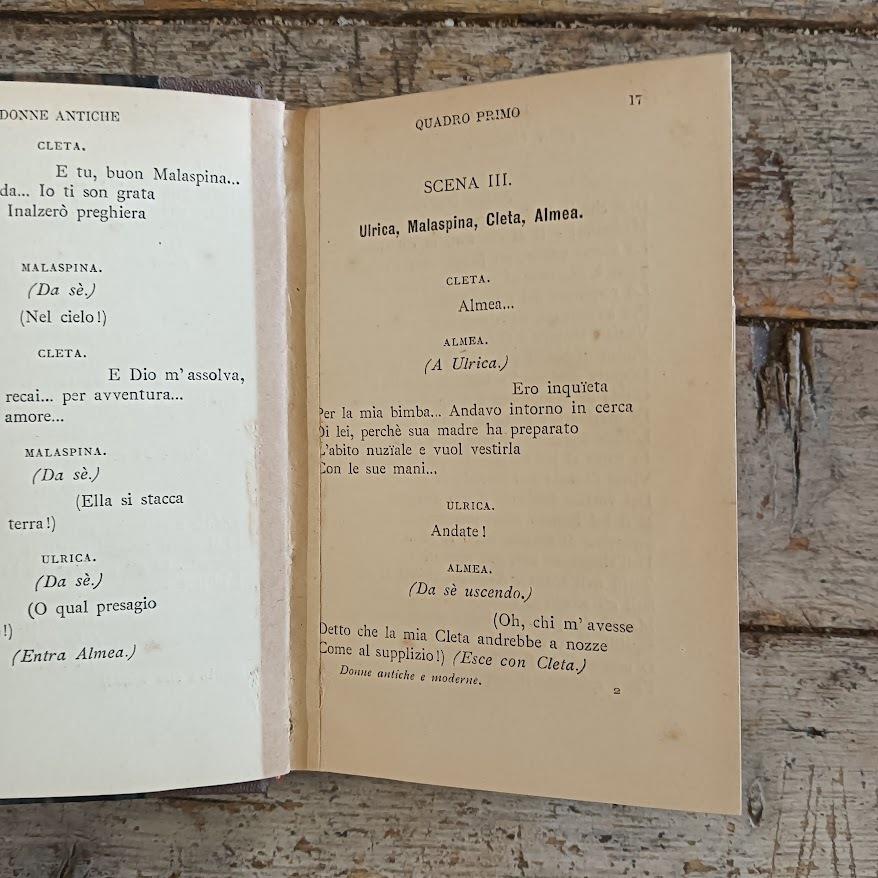 DONNE ANTICHE
CLETA.
E tu, buon Malaspina...
da... Io ti son grata
Inalzerò preghiera
MALASPINA.
(Da sè.)
(Nel cielo!)
CLETA.
E Dio m'assolva,
recai... per avventura...
amore...
MALASPINA.
(Da sè.)
(Ella si stacca
terra!)
ULRICA.
(Da sè.)
(O qual presagio
!)
(Entra Almea.)
QUADRO PRIMO 17
SCENA III.
Ulrica, Malaspina, Cleta, Almea.
CLETA.
Almea...
ALMEA.
(A Ulrica.)
Ero inquïeta
Per la mia bimba... Andavo intorno in cerca
Di lei, perchè sua madre ha preparato
L'abito nuzïale e vuol vestirla
Con le sue mani...
ULRICA.
Andate!
ALMEA.
(Da sè uscendo.)
(Oh, chi m'avesse
Detto che la mia Cleta andrebbe a nozze
Come al supplizio!) (Esce con Cleta.)
Donne antiche e moderne.
2